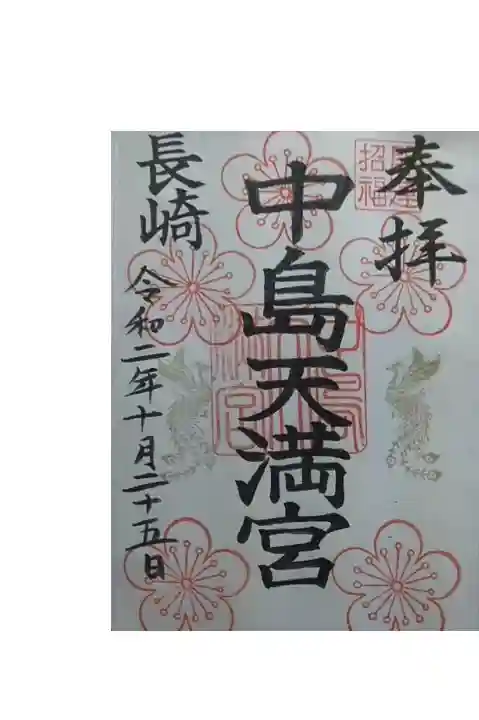 奉拝
招福
中島天満宮
長崎
令和二年十月二十五日